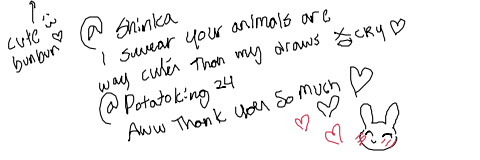 cute
bunbun
@ Shinka
I swear your animals are
way cuter than my draws *CRY
@Potatoking24
Aww Thank you so much